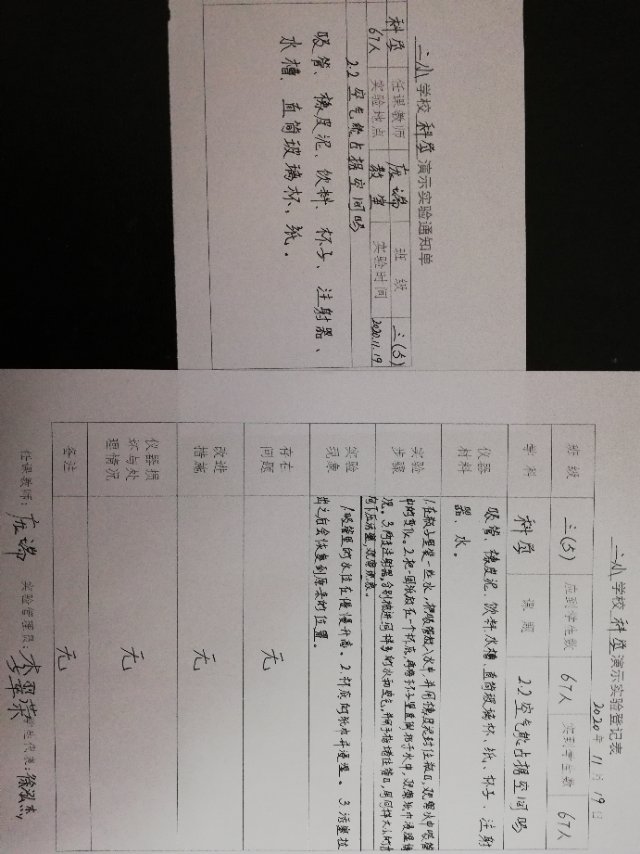 二小学校科学演示实验通知单
科学 任课教师 应端 班级 三(5)
67人 实验地点 教室 实验时间 2020.11.19
2.2空气能占据空间吗
吸管、橡皮泥、饮料、杯子、注射器、
水槽、直筒玻璃杯、纸。
二小学校科学演示实验登记表
2020年11月19日
班级 三(5) 应到学生数 67人 实到学生数 67人
学科 科学 课题 2.2空气能占据空间吗
仪器
材料
吸管、橡皮泥、饮料水槽、直筒玻璃杯、纸、杯子、注射
器、水。
实验
步骤
1.在瓶子里装一些水,把吸管插入水中,并用橡皮泥封住瓶口,观察水中吸管
中的变化。2.把一团纸放在一个杯底,再将杯子竖直倒扣于水中,观察纸巾浸湿情
况。3.两支注射器分别抽进同样多的水和空气,并用手指堵住管口,用同样大小的力
向下压活塞,观察现象。
实验
现象
1.吸管里的水位在慢慢升高。2.杯底的纸巾并浸湿。3.活塞拉
出之后会恢复到原来的位置。
存在
问题
无
改进
措施
无
仪器损
坏与处
理情况
无
备注
无
任课教师: 应端 实验管理员: 代表: